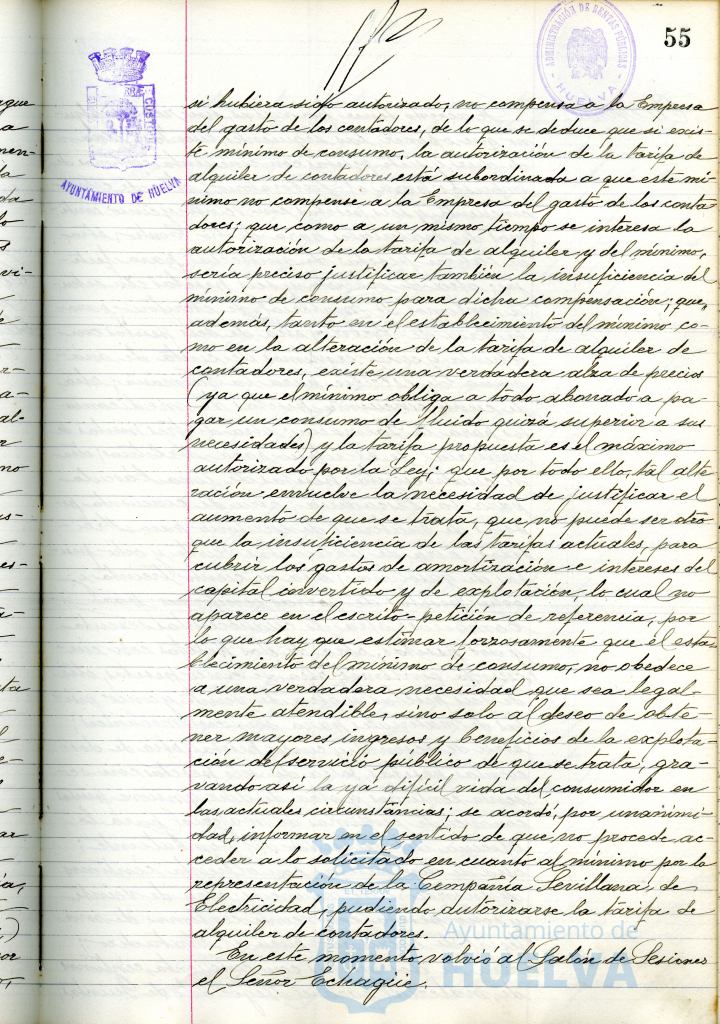 55
ADMINISTRACIÓN DE RENTAS PÚBLICAS
HUELVA
AYUNTAMIENTO DE HUELVA
si hubiera sido autorizado, no compensa a la Empresa
del gasto de los contadores, de lo que se deduce que si exis-
te mínimo de consumo, la autorización de la tarifa de
alquiler de contadores está subordinada a que este mí-
nimo no compense a la Empresa del gasto de los conta
dores; que como a un mismo tiempo se interesa la
autorización de la tarifa de alquiler y del mínimo,
seria preciso justificar también la insuficiencia del
mínimo de consumo para dicha compensación; que,
además, tanto en el establecimiento del mínimo co-
mo en la alteración de la tarifa de alquiler de
contadores, existe una verdadera alza de precios
(ya que el mínimo obliga a todo abonado a pa-
gar un consumo de fluido quizá superior a sus
necesidades) y la tarifa propuesta es el máximo
autorizado por la Ley; que por todo ello, tal alte
ración envuelve la necesidad de justificar el
aumento de que se trata, que no puede ser otro
que la insuficiencia de las tarifas actuales, para
cubrir los gastos de amortización e intereses del
capital invertido y de explotación, lo cual no
aparece en el escrito-petición de referencia, por
lo que hay que estimar forzosamente que el esta
blecimiento del mínimo de consumo, no obedece
a una verdadera necesidad que sea legal-
mente atendible, sino solo al deseo de obte-
ner mayores ingresos y beneficios de la explota-
ción del servicio público de que se trata, gra-
vando así la ya difícil vida del consumidor en
las actuales circunstancias; se acordó, por unanimi-
dad, informar en el sentido de que no procede ac-
ceder a lo solicitado en cuanto al mínimo por la
representación de la Compañía Sevillana de
Electricidad, pudiendo autorizarse la tarifa de
alquiler de contadores.
En este momento, volvió al Salón de Sesiones
el Señor Echagüe.
Ayuntamiento de
HUELVA